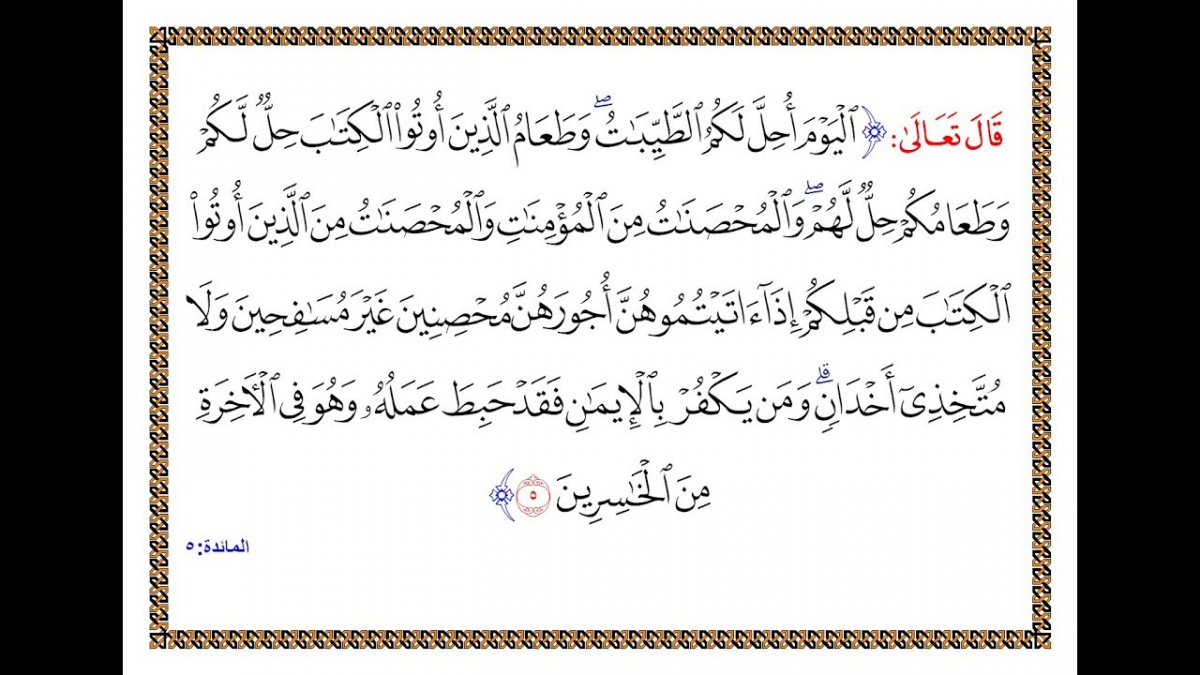 قَالَ تَعَالَىٰ: ﴿ ٱلْيَوْمَ أُحِلَّ لَكُمُ ٱلطَّيِّبَٰتُ ۖ وَطَعَامُ ٱلَّذِينَ أُوتُوا۟ ٱلْكِتَٰبَ حِلٌّ لَّكُمْ
وَطَعَامُكُمْ حِلٌّ لَّهُمْ ۖ وَٱلْمُحْصَنَٰتُ مِنَ ٱلْمُؤْمِنَٰتِ وَٱلْمُحْصَنَٰتُ مِنَ ٱلَّذِينَ أُوتُوا۟
ٱلْكِتَٰبَ مِن قَبْلِكُمْ إِذَآ ءَاتَيْتُمُوهُنَّ أُجُورَهُنَّ مُحْصِنِينَ غَيْرَ مُسَٰفِحِينَ وَلَا
مُتَّخِذِىٓ أَخْدَانٍ ۗ وَمَن يَكْفُرْ بِٱلْإِيمَٰنِ فَقَدْ حَبِطَ عَمَلُهُۥ وَهُوَ فِى ٱلْءَاخِرَةِ
مِنَ ٱلْخَٰسِرِينَ ٥ ﴾
المائدة: ٥